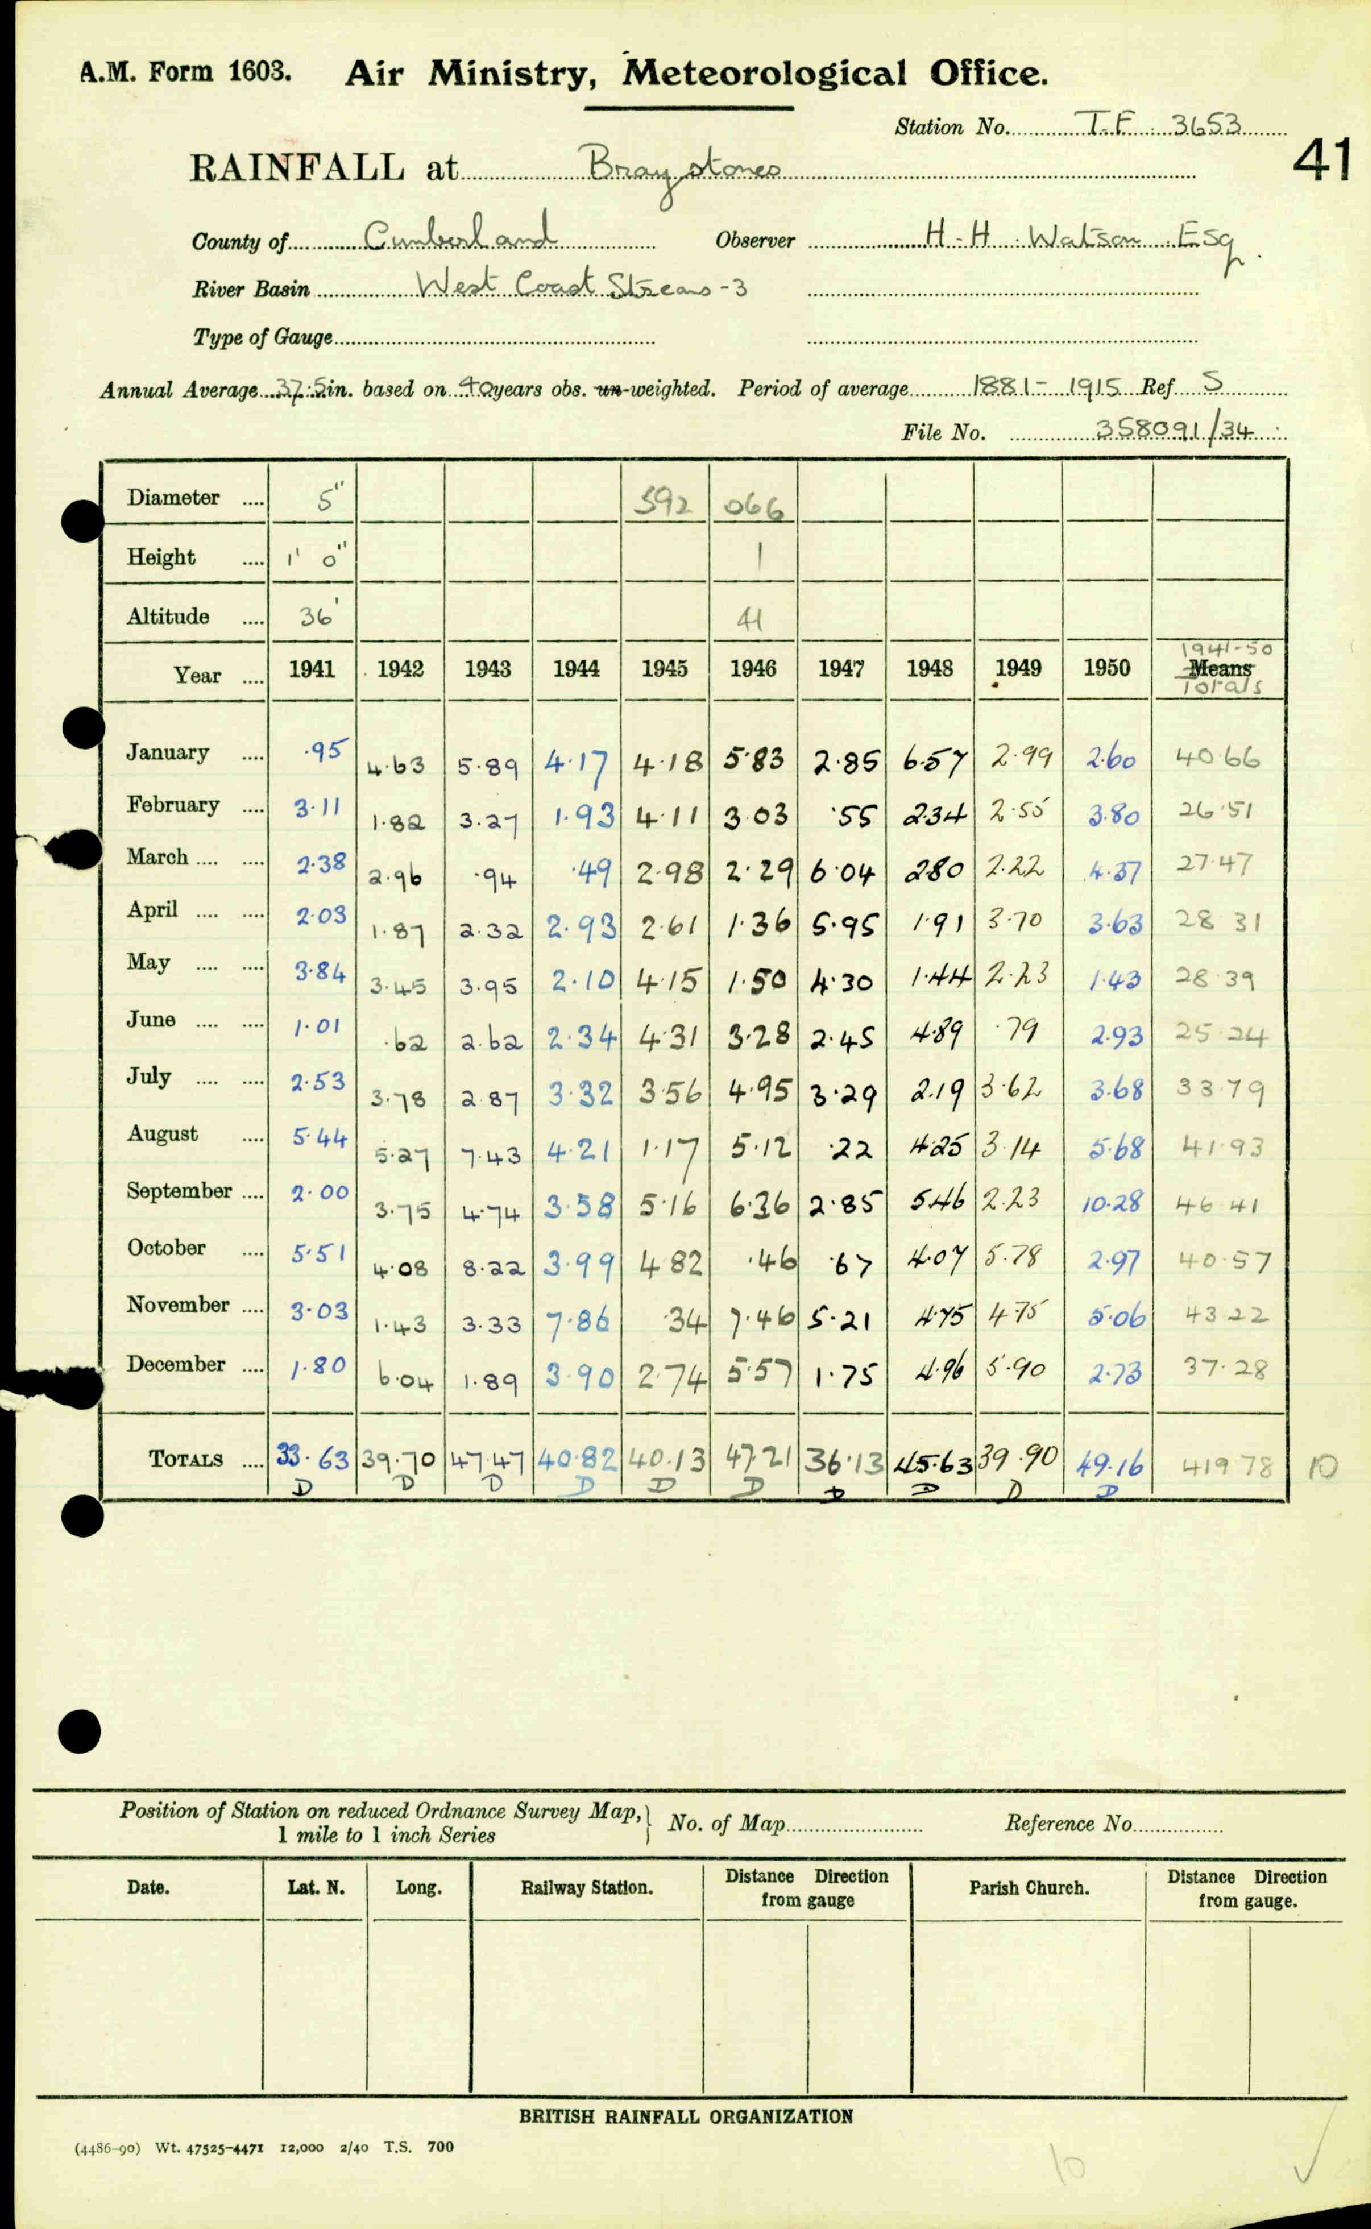 A.M. Form 1603. Air Ministry, Meteorological Office.
Station No. T.F. 3653
41
RAINFALL at Braystones
County of Cumberland Observer H. H. Watson Esq.
River Basin West Coast Streams - 3
Type of Gauge
Annual Average 37.5 in. based on 40 years obs. un-weighted. Period of average 1881 - 1915 Ref S
File No. 358091/34
Diameter .... 5" 592 066
Height .... 1' 0" 1
Altitude .... 36' 41
1941-50
Year .... 1941 1942 1943 1944 1945 1946 1947 1948 1949 1950 Means
Totals
January .... .95 4.63 5.89 4.17 4.18 5.83 2.85 6.57 2.99 2.60 40.66
February .... 3.11 1.82 3.27 1.93 4.11 3.03 .55 2.34 2.55 3.80 26.51
March .... .... 2.38 2.96 .94 .49 2.98 2.29 6.04 2.80 2.22 4.37 27.47
April .... .... 2.03 1.87 2.32 2.93 2.61 1.36 5.95 1.91 3.70 3.63 28.31
May .... .... 3.84 3.45 3.95 2.10 4.15 1.50 4.30 1.44 2.23 1.43 28.39
June .... .... 1.01 .62 2.62 2.34 4.31 3.28 2.45 4.89 .79 2.93 25.24
July .... .... 2.53 3.78 2.87 3.32 3.56 4.95 3.29 2.19 3.62 3.68 33.79
August .... 5.44 5.27 7.43 4.21 1.17 5.12 .22 4.25 3.14 5.68 41.93
September .... 2.00 3.75 4.74 3.58 5.16 6.36 2.85 5.46 2.23 10.28 46.41
October .... 5.51 4.08 8.22 3.99 4.82 .46 .67 4.07 5.78 2.97 40.57
November .... 3.03 1.43 3.33 7.86 .34 7.46 5.21 4.75 4.75 5.06 43.22
December .... 1.80 6.04 1.89 3.90 2.74 5.57 1.75 4.96 5.90 2.73 37.28
TOTALS .... 33.63 39.70 47.47 40.82 40.13 47.21 36.13 45.63 39.90 49.16 419.78 10
D D D D D D D D D D
Position of Station on reduced Ordnance Survey Map, } No. of Map Reference No.
1 mile to 1 inch Series
Date. Lat. N. Long. Railway Station. Distance Direction from gauge Parish Church. Distance Direction from gauge.
BRITISH RAINFALL ORGANIZATION
(4486-90) Wt. 47525-4471 12,000 2/40 T.S. 700
10